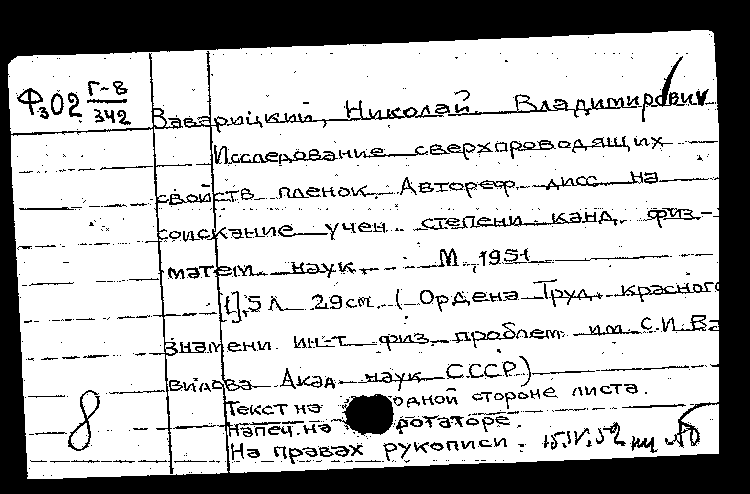 Фз02 Г-В/342
Заварицкий, Николай Владимирович
Исследование сверхпроводящих
свойств пленок. Автореф. дисс. на
соискание учен. степени канд. физ.-
матем. наук. М., 1951
[1], 5 л. 29см. (Ордена Труд. Красного
знамени ин-т физ. проблем им. С.И. Ва
вилова Акад. наук СССР)
Текст на одной стороне листа.
Напеч. на ротаторе.
На правах рукописи.
15.IV.52
8